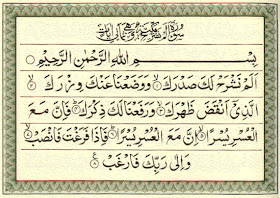 سُوْرَةُ
بِسْمِ اللهِ الرَّحْمٰنِ الرَّحِيْمِ
اَلَمْ نَشْرَحْ لَكَ صَدْرَكَ ۙ وَوَضَعْنَا عَنْكَ وِزْرَكَ
الَّذِيْۤ اَنْقَضَ ظَهْرَكَ ۙ وَرَفَعْنَا لَكَ ذِكْرَكَ ؕ فَاِنَّ مَعَ
الْعُسْرِ يُسْرًا ۙ اِنَّ مَعَ الْعُسْرِ يُسْرًا ؕ فَاِذَا فَرَغْتَ فَانْصَبْ
وَاِلٰى رَبِّكَ فَارْغَبْ